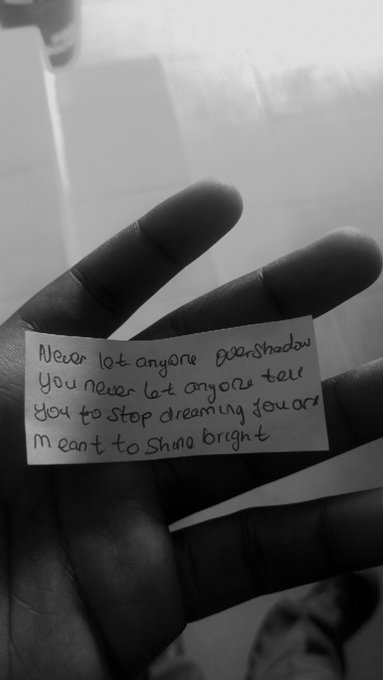 Never let anyone overshadow
you never let anyone tell
you to stop dreaming you are
meant to shine bright